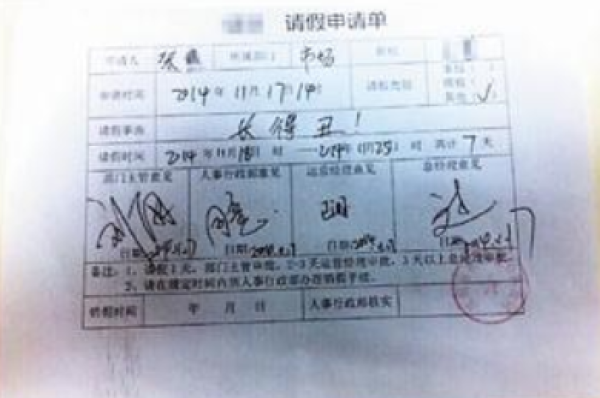 请假申请单
申请人 张 所属部门 市场 职位
申请时间 2014年11月17日14时 请假类别 事假( ) 病假( ) 其他(√)
请假事由 长得丑!
请假时间 2014年11月18日 时—2014年11月25日 时 共计7天
部门主管意见 人事行政部意见 运营经理意见 总经理意见
日期 日期 日期 日期
备注:1、请假1天,部门主管审批,2-3天运营经理审批,3天以上总经理审批。
2、请在规定时间内到人事行政部办理销假手续。
销假时间 年 月 日 人事行政部核实